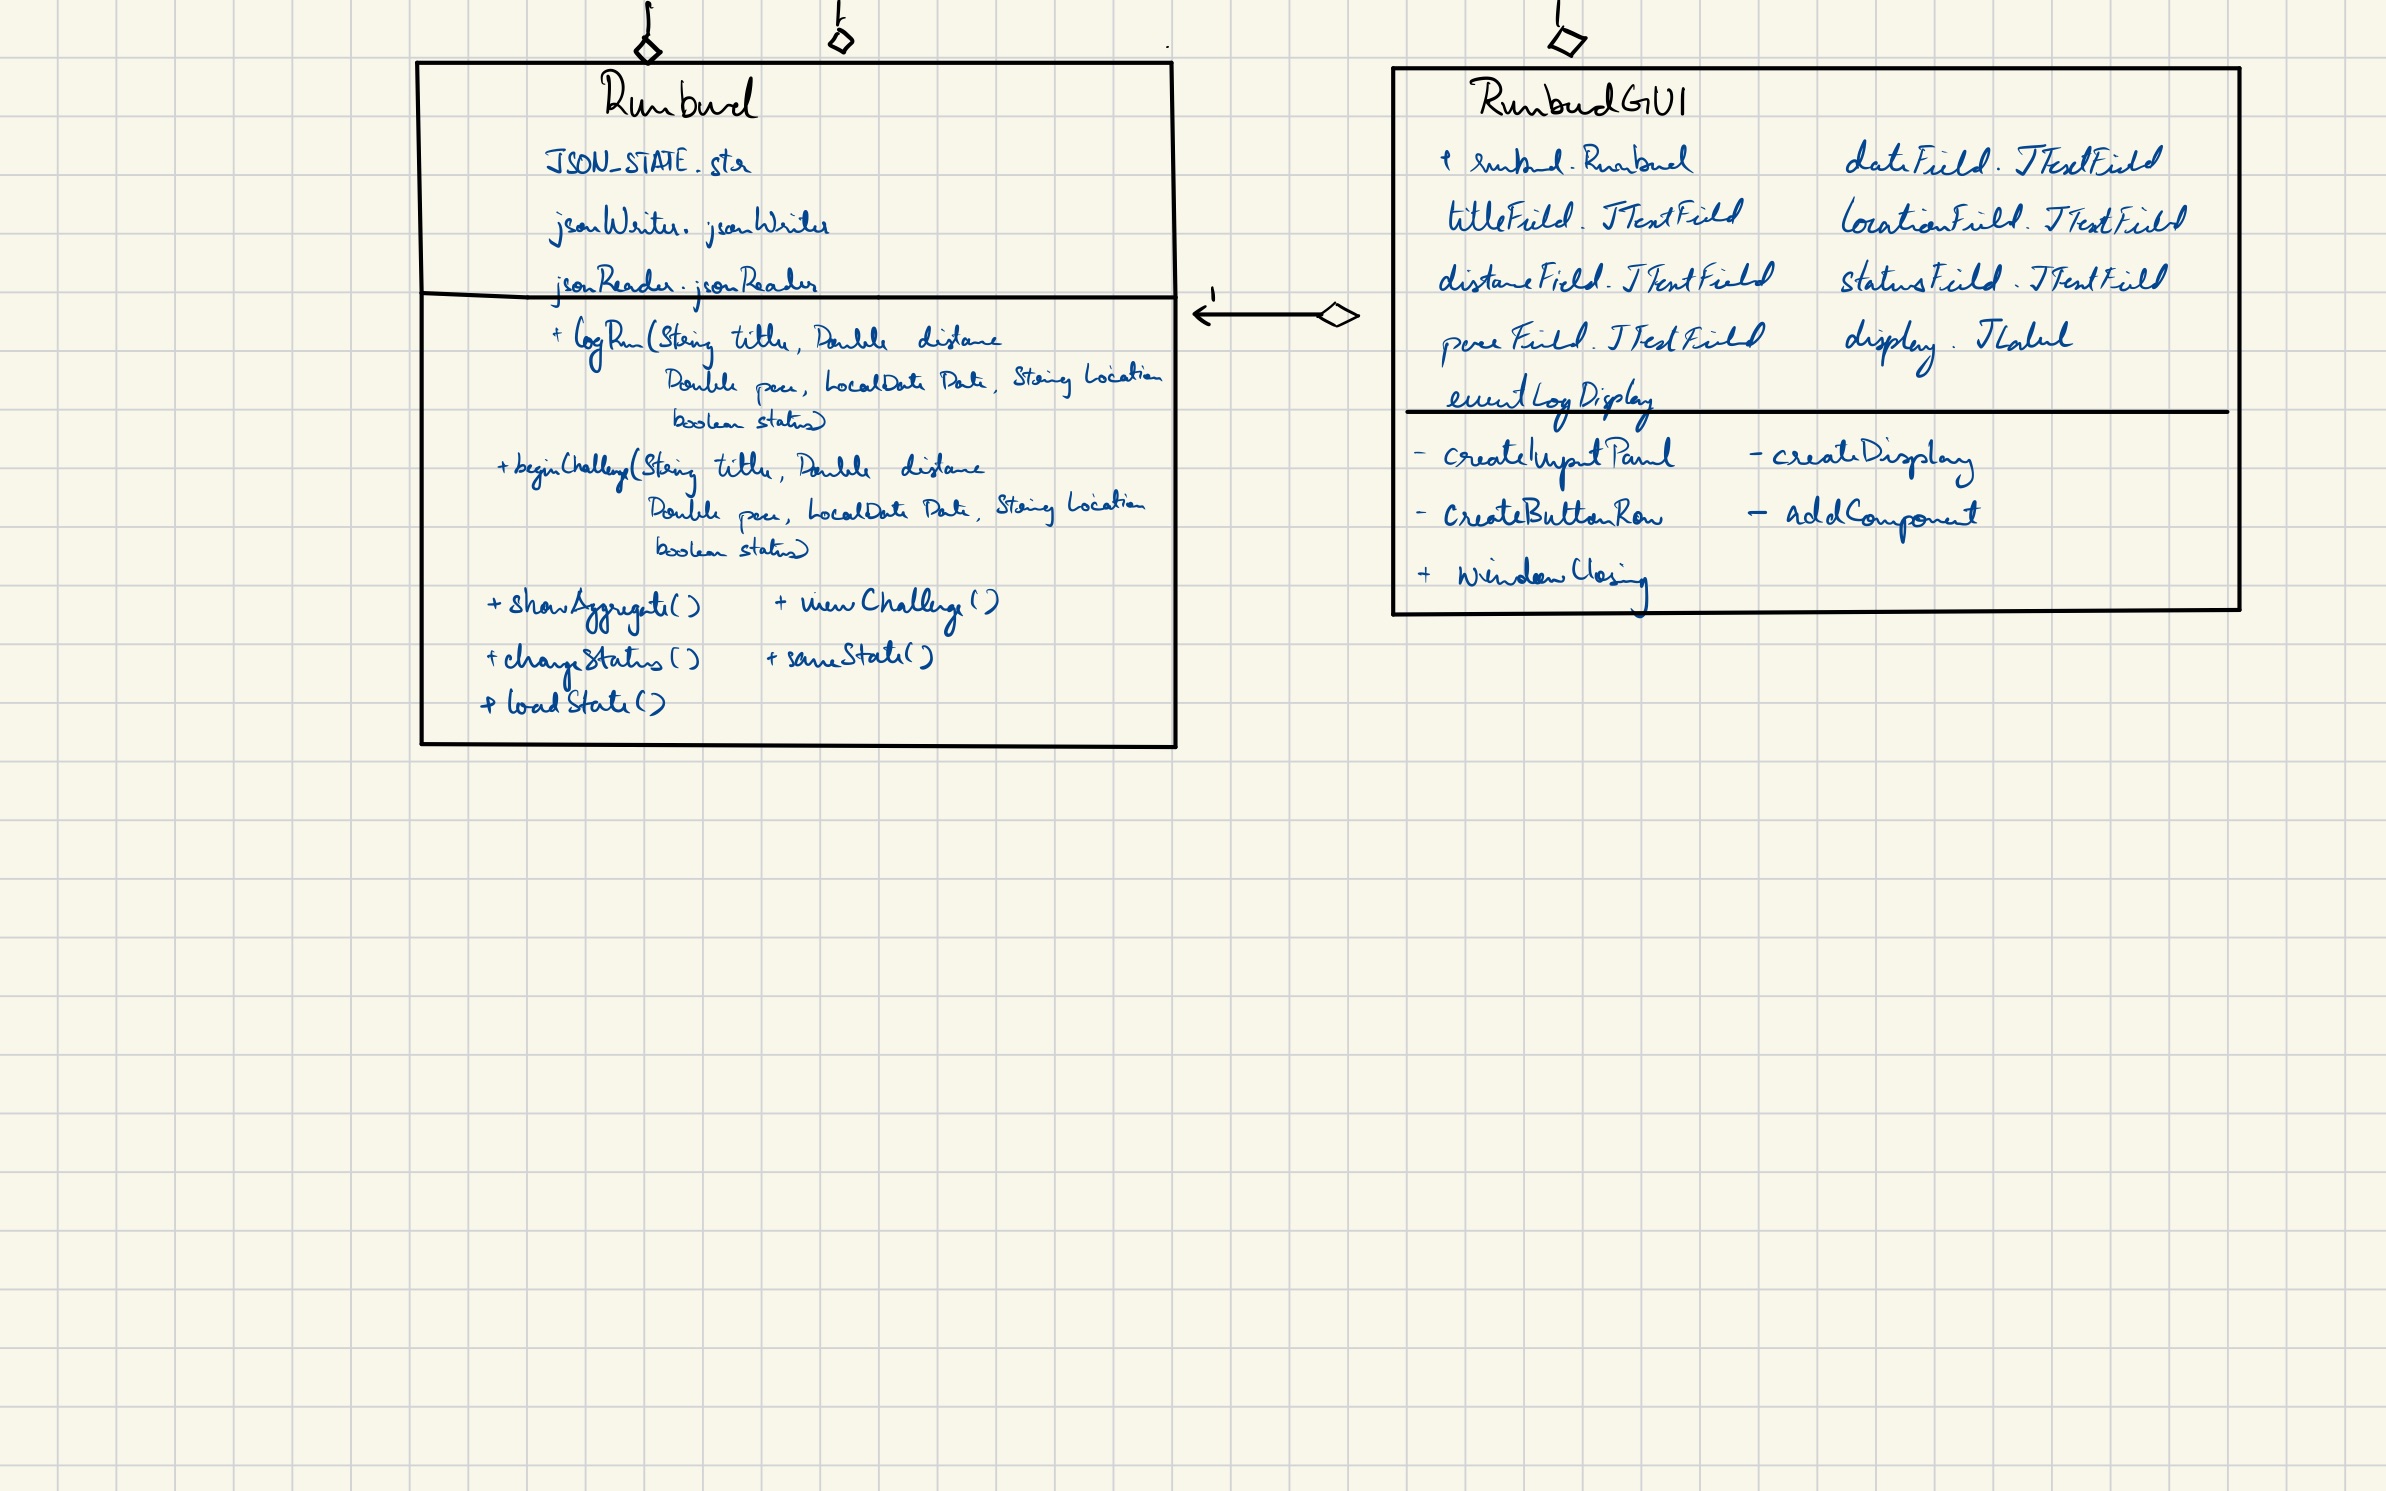 Runbud
JSON_STATE . str
jsonWriter . jsonWriter
jsonReader . jsonReader
+ logRun(String title, Double distance
Double pace, LocalDate Date, String Location
boolean status)
+ beginChallenge(String title, Double distance
Double pace, LocalDate Date, String Location
boolean status)
+ showAggregate() + viewChallenge()
+ changeStatus() + saveState()
+ loadState()
1
RunbudGUI
+ runbud . Runbud dateField . JTextField
titleField . JTextField locationField . JTextField
distanceField . JTextField statusField . JTextField
paceField . JTextField display . JLabel
eventLogDisplay
- createInputPanel - createDisplay
- createButtonRow - addComponent
+ windowClosing